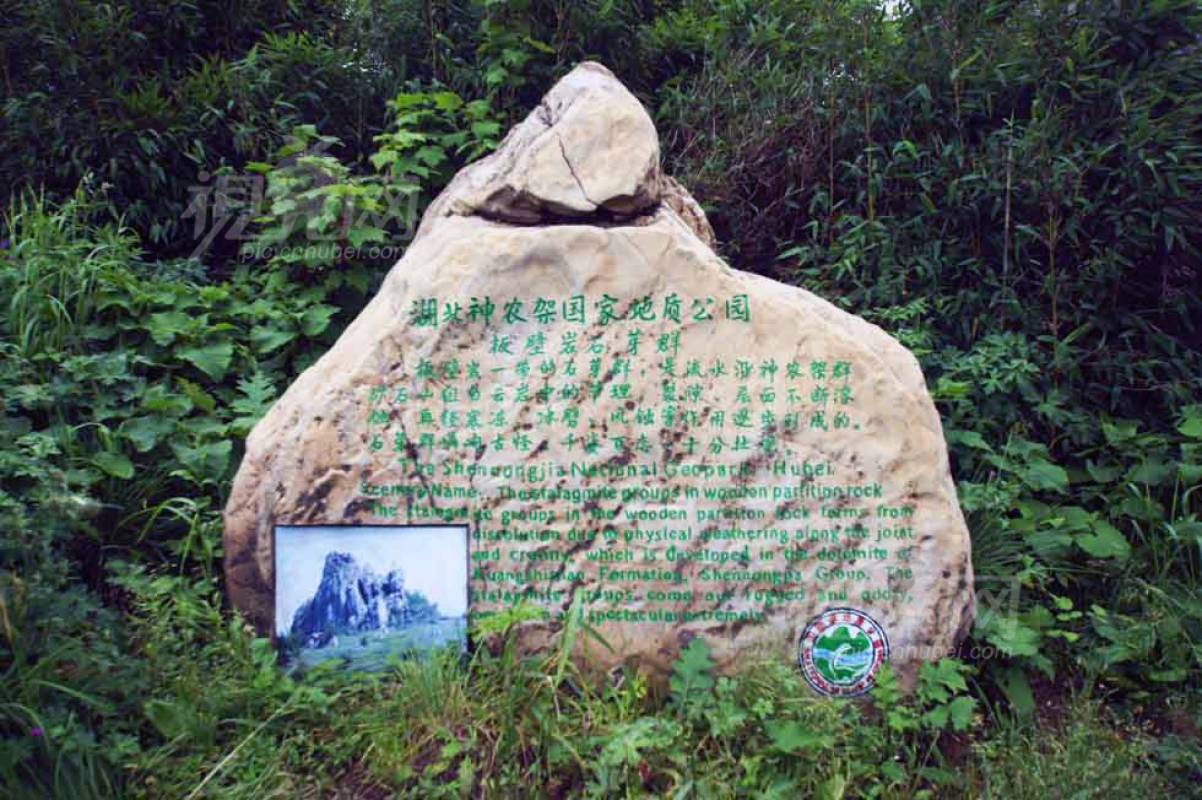 湖北神农架国家地质公园
板壁岩石芽群
板壁岩一带的石芽群,是流水沿神农架群
石山组白云岩中的节理、裂隙、层面不断溶
蚀,再经寒冻、冰劈、风蚀等作用逐步形成的。
石芽群嶙峋古怪,千姿百态,十分壮观。
The Shennongjia National Geopark, Hubei
Scenery Name: The stalagmite groups in wooden partition rock
The stalagmite groups in the wooden partition rock forms from
dissolution due to physical weathering along the joint
and cranny, which is developed in the dolomite of
Formation, Shennongjia Group. The
stalagmite groups come out rugged and oddly,
and spectacular extremely.
視界网
picccnhubei.com